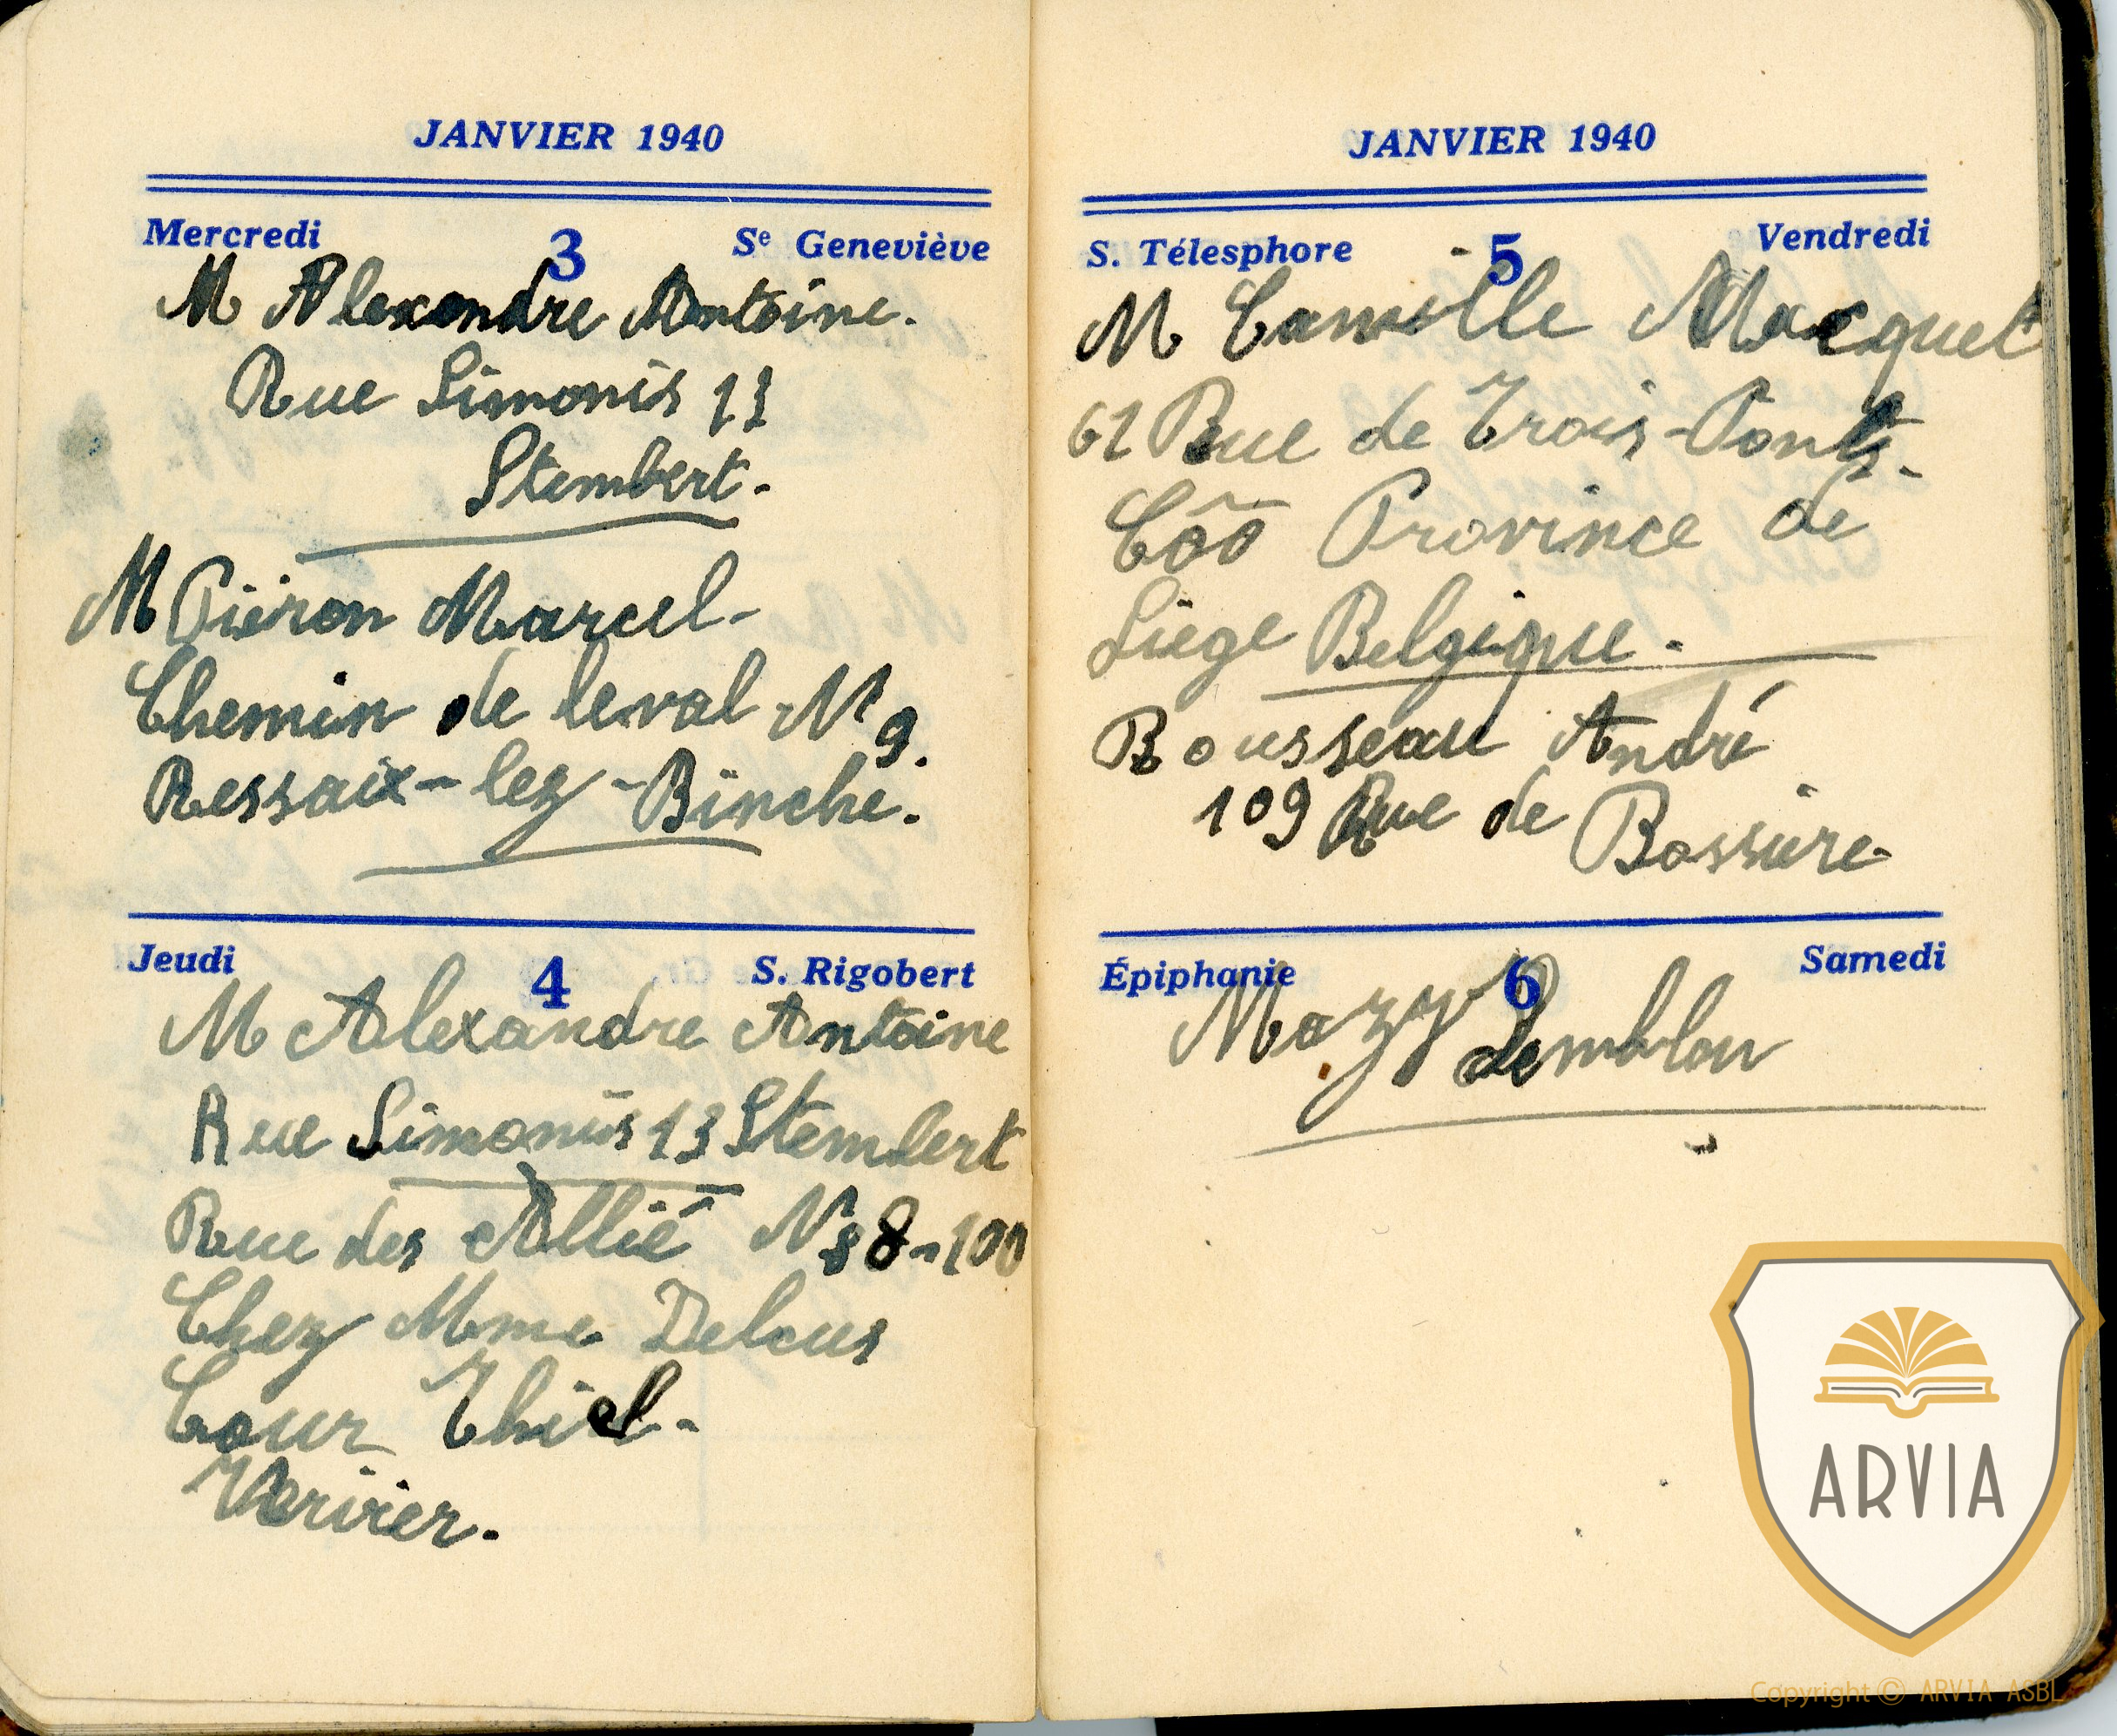 JANVIER 1940
Mercredi 3 Se Geneviève
M Alexandre Antoine.
Rue Simonis 13
Stembert.
M Piéron Marcel-
Chemin de leval N 9.
Ressaix-lez-Binche.
Jeudi 4 S. Rigobert
M Alexandre Antoine
Rue Simonis 13 Stembert
Rue des Allié N 98-100
Chez Mme Delcus
Cour Thiel-
Vervier.
JANVIER 1940
S. Télesphore 5 Vendredi
M Camille Macquet
61 Rue de Trois-Ponts-
Côo Province de
Liége Belgique.
Rousseau André
109 Rue de Bossière
Épiphanie 6 Samedi
Mazy Jemblou
ARVIA
Copyright © ARVIA ASBL